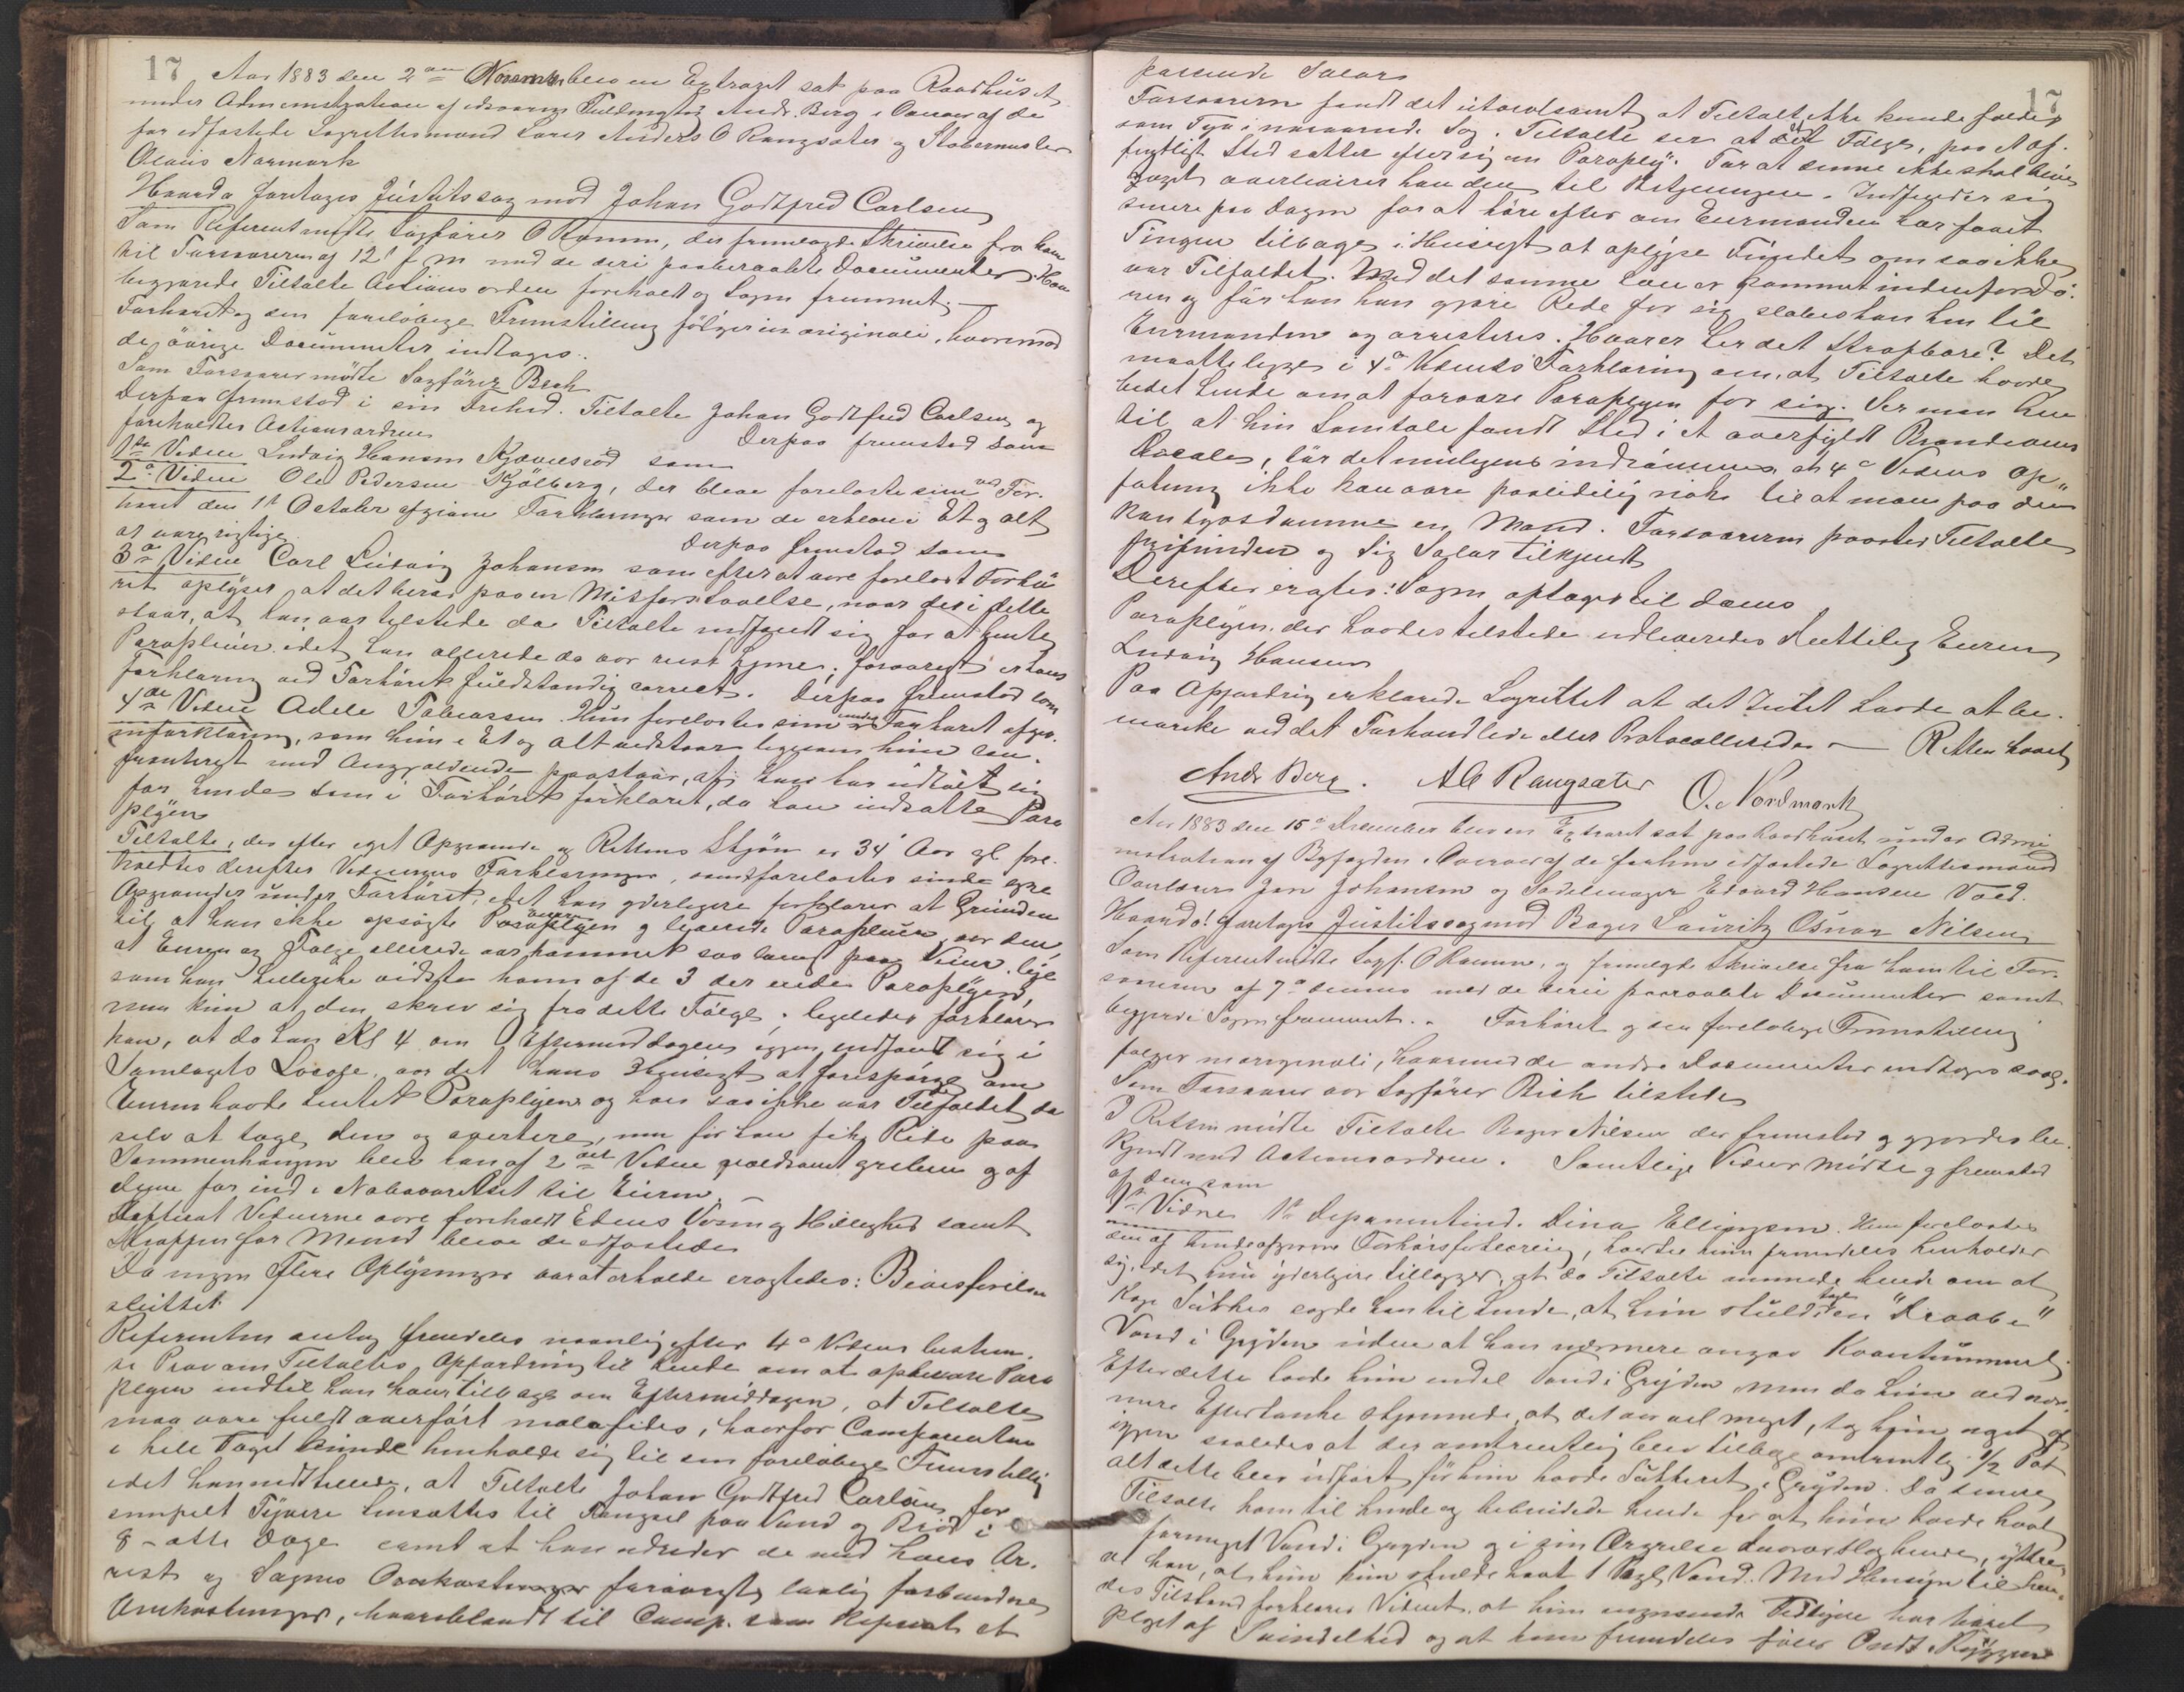 17
Aar 1883 den 2den November blev en Extraret sat paa Raadhuset
under Administration af edsvoren Fuldmægtig Andr. Berg i Overvær af de
før edfæstede Lagrettesmænd Lærer Anders O Rangsæter og Stabermester
Olaus Normark
Hvorda foretages Justitssag mod Johan Godtfred Carlsen
Som Referent mødte Sagfører O Ramm, der fremlagde Skrivelse fra ham
til Forsvareren af 12te f. M. med de deri paaberaabte Documenter. Han
begjærede Tiltalte Actionsordren foreholdt og Sagen fremmet.
Forhøret og den foreløbige Fremstilling følger in originali, hvorimod
de øvrige Documenter indtages.
Som Forsvarer mødte Sagfører Bech
Derpaa fremstod i sin Frihed Tiltalte Johan Godtfred Carlsen og
foreholdtes Actionsordren Derpaa fremstod som
1ste Vidne Ludvig Hansen Kjævelsrød som
2det Vidne Ole Pedersen Kjölberg, der bleve forelæste sine ved For-
høret den 1ste October afgivne Forklaringer som de erklære i Et og alt
at være rigtige. Derpaa fremstod som
3die Vidne Carl Ludvig Johansen som efter at være forelæst Forhø
ret oplyser at det beror paa en Misforstaaelse, naar der i dette
staar, at han var tilstede da Tiltalte indfandt sig for at hente
Parapluien idet han allerede da var reist hjem; forøvrigt er hans
Forklaring ved Forhøret fuldstændig correct. Derpaa fremstod som
4de Vidne Adele Tobiassen. Hun forelæstes sin under Forhøret afgiv-
en forklaring, som hun i Et og Alt vedstaar ligesom hun con-
fronteret med Angjældende paastaar, at han har udtalt sig
for hende som i Forhøret forklaret, da han indsatte Para
plyen
Tiltalte, der efter eget Opgivende og Rettens Skjøn er 34 Aar gl. fore-
holdtes derefter Vidnernes Forklaringer, samt forelæstes sinde egne
Opgivender under Forhøret, idet han yderligere forklarer at Grunden
til at han ikke opsøgte Eieren og leverede Parapluien var den,
at Eieren og Følge allerede var kommet saa langt paa Veien, lige
som han heller ikke vidste hvem af de 3 der eiede Paraplyen,
men kun at den skrev sig fra dette Følge. ligeledes forklarer
han, at da han Kl 4 om Eftermiddagen igjen indfandt sig i
Samlagets Locale, var det hans Hensigt at forespørge om
Eieren havde hentet Paraplyen og hvis saa ikke var Tilfældet da
selv at tage den og avertere, men før han fik Rede paa
Sammenhængen blev han af 2det Vidne voldsomt greben og af
denne før ind i Naboværelset til Eieren.
Efterat Vidnerne vare foreholdt Edens Vigtighed og Hellighed samt
Straffen for Meened bleve de edfæstede
Da ingen flere Oplysninger var at erholde eragtedes: Beviisførelsen
sluttet.
Referenten antog fremdeles navnlig efter 4de Vidnes bestem-
te Prov om Tiltaltes Opfordring til hende om at opbevare Para
plyen indtil han kom tilbage om Eftermiddagen, at Tiltalte
maa være fuldt overført mala fides, hvorfor Comparenten
i hele Taget kunde henholde sig til sin foreløbige Fremstilling
idet han indstiller, at Tiltalte Johan Godtfred Carlsen for
simpelt Tyveri hensættes til Fængsel paa Vand og Brød i
8 – otte Dage samt at han udreder de med hans Ar-
rest og Sagens forøvrigt lovlig forbundne
Omkostninger, hvoriblandt til Comp. som Referent et
17
passende Salær
Forsvareren fandt det utvivlsomt at Tiltalte ikke kunde fældes
som Tyv i nærværende Sag. Tiltalte ser at et Følge, paa et of-
fentligt Sted sætter efter sig en Paraply. For at denne ikke skal blive
taget overleverer han den til Betjeningen. Indfinder sig
senere paa Dagen for at høre efter om Eiermanden har faaet
Tingen tilbage i Hensigt at oplyse Fundet om saa ikke
var Tilfældet. Med det samme han er kommet indenfor Dø-
ren og før han kan gjøre Rede for sig slæbes han hen til
Eiermanden og arresteres. Hvor er her det Strafbare? Det
maatte ligge i 4de Vidnes Forklaring om, at Tiltalte havde
bedet hende om at forvare Paraplyen for sig. Ser man hen
til at hin Samtale fandt Sted i et overfyldt Brændevins
Locale, bør det muligens indrømmes at 4de Vidnes Op-
fatning ikke kan være paalidelig nok til at man paa den
kan tyvsdømme en Mand. Forsvareren paastod Tiltalte
frifunden og sig Salær tilkjendt
Derefter eragtes: Sagen optages til Doms
Paraplyen der havdes tilstede udleveredes Rettelig Eieren
Ludvig Hansen
Paa Opfordring erklærede Lagrettet at det Intet havde at be-
mærke ved det Forhandlede eller Protocollerede. — Retten hævet
Andr Berg. AO Rangsæter O. Nordmark
Aar 1883 den 15de December blev en Extraret sat paa Raadhuset under Admi
nistration af Byfogden i Overvær af de forhen edfæstede Lagrettesmænd
Jan Johansen og Sadelmager Edvard Hansen Vold.
Hvorda foretages Justitssag mod Bager Lauritz Osuar Nilsen
Som Referent mødte Sagf. O Ramm, og fremlagde Skrivelse fra ham til For-
svareren af 7de dennes med de deri paaraabte Documenter samt
begjærede Sagen fremmet. Forhøret og den foreløbige Fremstilling
følger in originali, hvorimod de andre Documenter indtages saal.
Som Forsvarer var Sagfører Bech tilstede
I Retten mødte Tiltalte Bager Nilsen der fremstod og gjordes be-
kjendt med Actionsordren. Samtlige Vidner mødte og fremstod
af dem som
1ste Vidne Dina Ellingsen. Hun forelæstes
den af hende afgivne Forhørsforklaring, hvortil hun fremdeles henholder
sig, idet hun yderligere tillægger, at da Tiltalte anmode hende om at
koge Sukker sagde han til hende, at hun skulde tage en "Draabe"
Vand i Gryden uden at han nærmere angav Kvantummet.
Efter dette havde hun endel Vand i Gryden, men da hun ved nær-
mere Eftertanke skjønnede, at det var vel meget, tog hun noget af
igjen saaledes at der omtrentlig blev tilbage omtrentlig 1/2 Pot
alt dette blev udført før hun havde Sukkeret i Gryden. Da senere
Tiltalte kom til hende og bebreidede hende for at hun havde havt
formeget Vand i Gryden og i sin Ærgrelse derover slog hende, yttre-
de han, at hun kun skulde havt 1 Pægl Vand. Med Hensyn til hen-
des Tilstand forklarer Vidnet, at hun har været
plaget af Svimmelhed og at hun fremdeles føler Ondt i Ryggen